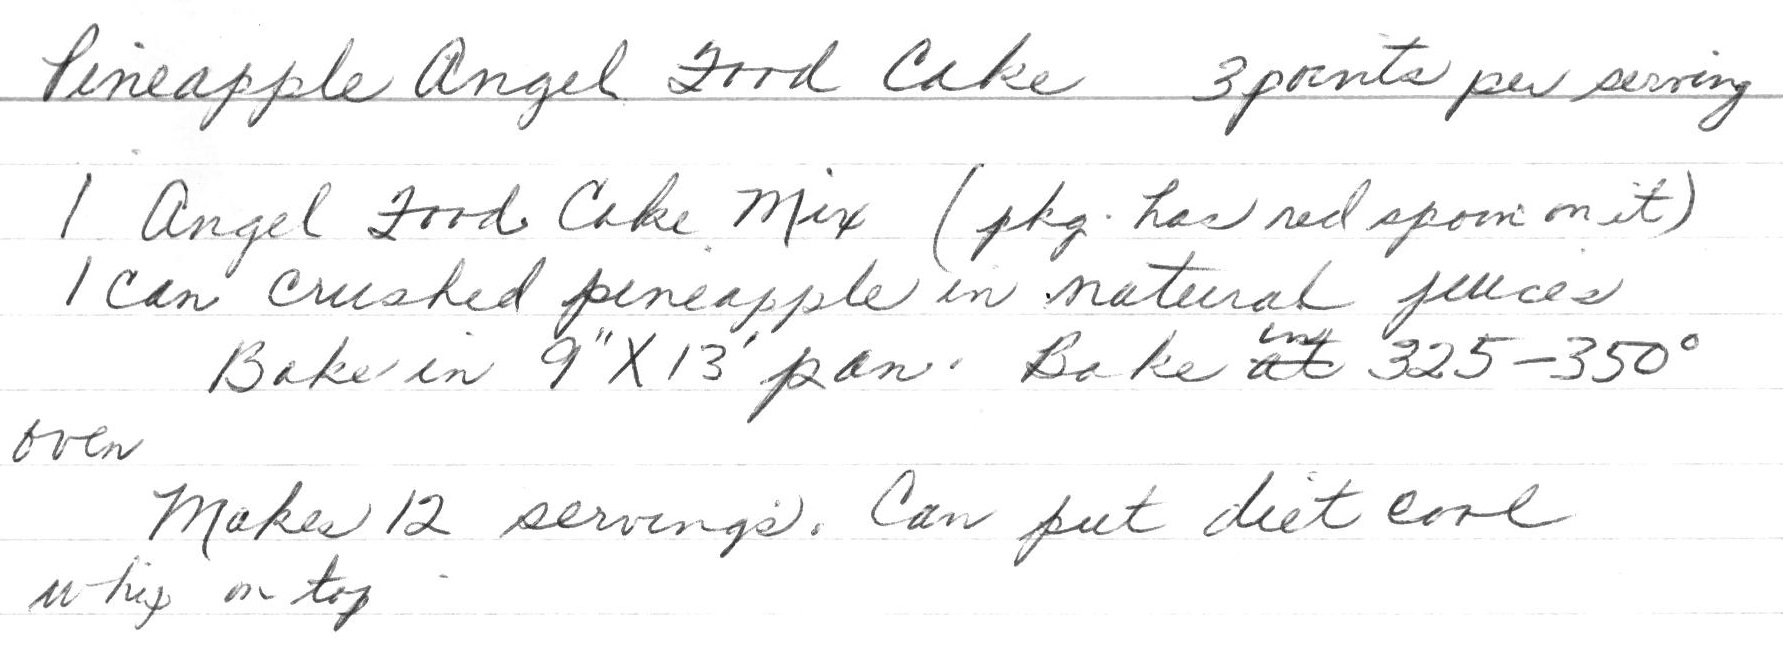 Pineapple Angel Food Cake 3 points per serving
1 Angel Food Cake Mix (pkg. has red spoon on it)
1 can crushed pineapple in natural juices
Bake in 9" X 13' pan. Bake in 325-350°
oven
Makes 12 servings. Can put diet cool
whip on top